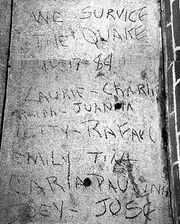 WE SURVICE
THE QUAKE
17 89
LAURIE - CHARLIE
JUANITA
BETTY - RAFAEL
EMILY - TINA
MARIA PAULINA
JOEY - JOSE